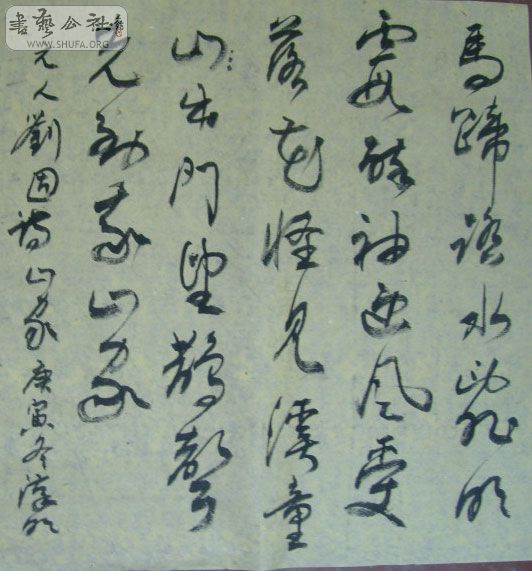 書藝公社
WWW.SHUFA.ORG
馬蹄踏水亂明
霞醉袖迎風受
落花怪見溪童
山出門望鵲聲
先到我山家
元人劉因詩山家庚寅冬